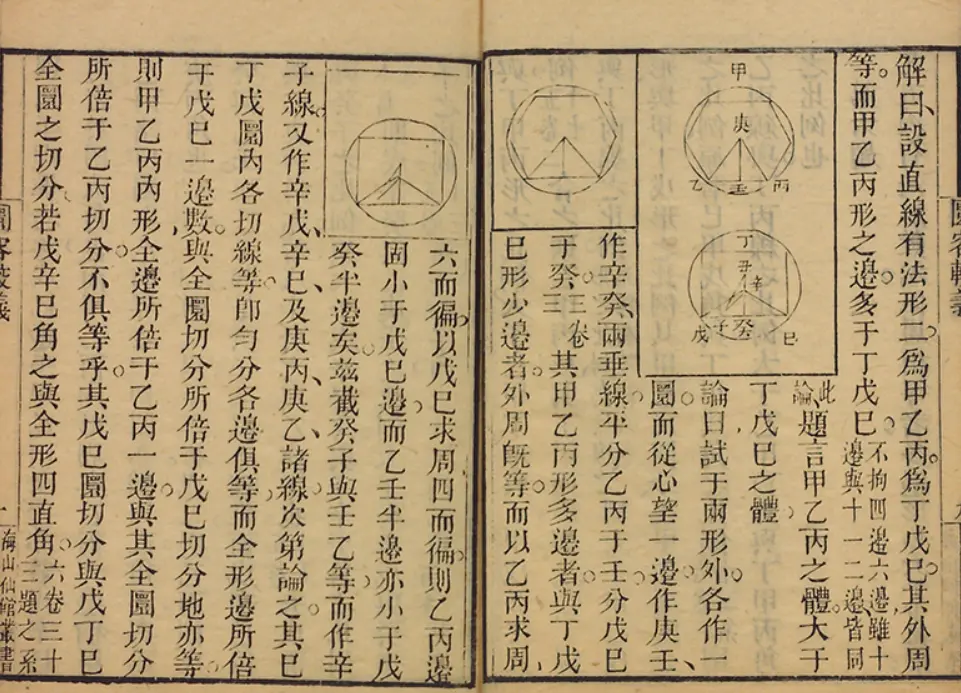 解曰、設直線有法形二。爲甲乙丙。爲丁戊巳。其外周
等。而甲乙丙形之邊。多于丁戊巳。
不拘四邊六邊、雖十
邊與十一二邊、皆同
此論
題言甲乙丙之體。大于
丁戊巳之體。
論曰試于兩形外。各作一
圜。而從心望一邊。作庚壬、
作辛癸、兩垂線。平分乙丙于壬。分戊巳
于癸。三卷三
其甲乙丙形多邊者。與丁戊
巳形少邊者。外周旣等。而以乙丙求周
甲
庚
乙
壬
丙
丁
丑
辛
戊
子
癸
巳
六而徧。以戊巳求周四而徧。則乙丙邊
固小于戊巳邊。而乙壬半邊。亦小于戊
癸半邊矣。茲截癸子與壬乙等。而作辛
子線。又作辛戊、辛巳、及庚丙、庚乙、諸線。次第論之。其巳
丁戊圜內各切線等。卽勻分各邊俱等。而全形邊所倍
于戊巳一邊數。與全圜切分所倍于戊巳切分地亦等。
則甲乙丙內形全邊所倍于乙丙一邊。與其全圜切分
所倍于乙丙切分。不俱等乎。其戊巳圜切分與戊丁巳
全圜之切分。若戊辛巳角之與全形四直角。
六卷三十
三題之系
海山仙館叢書